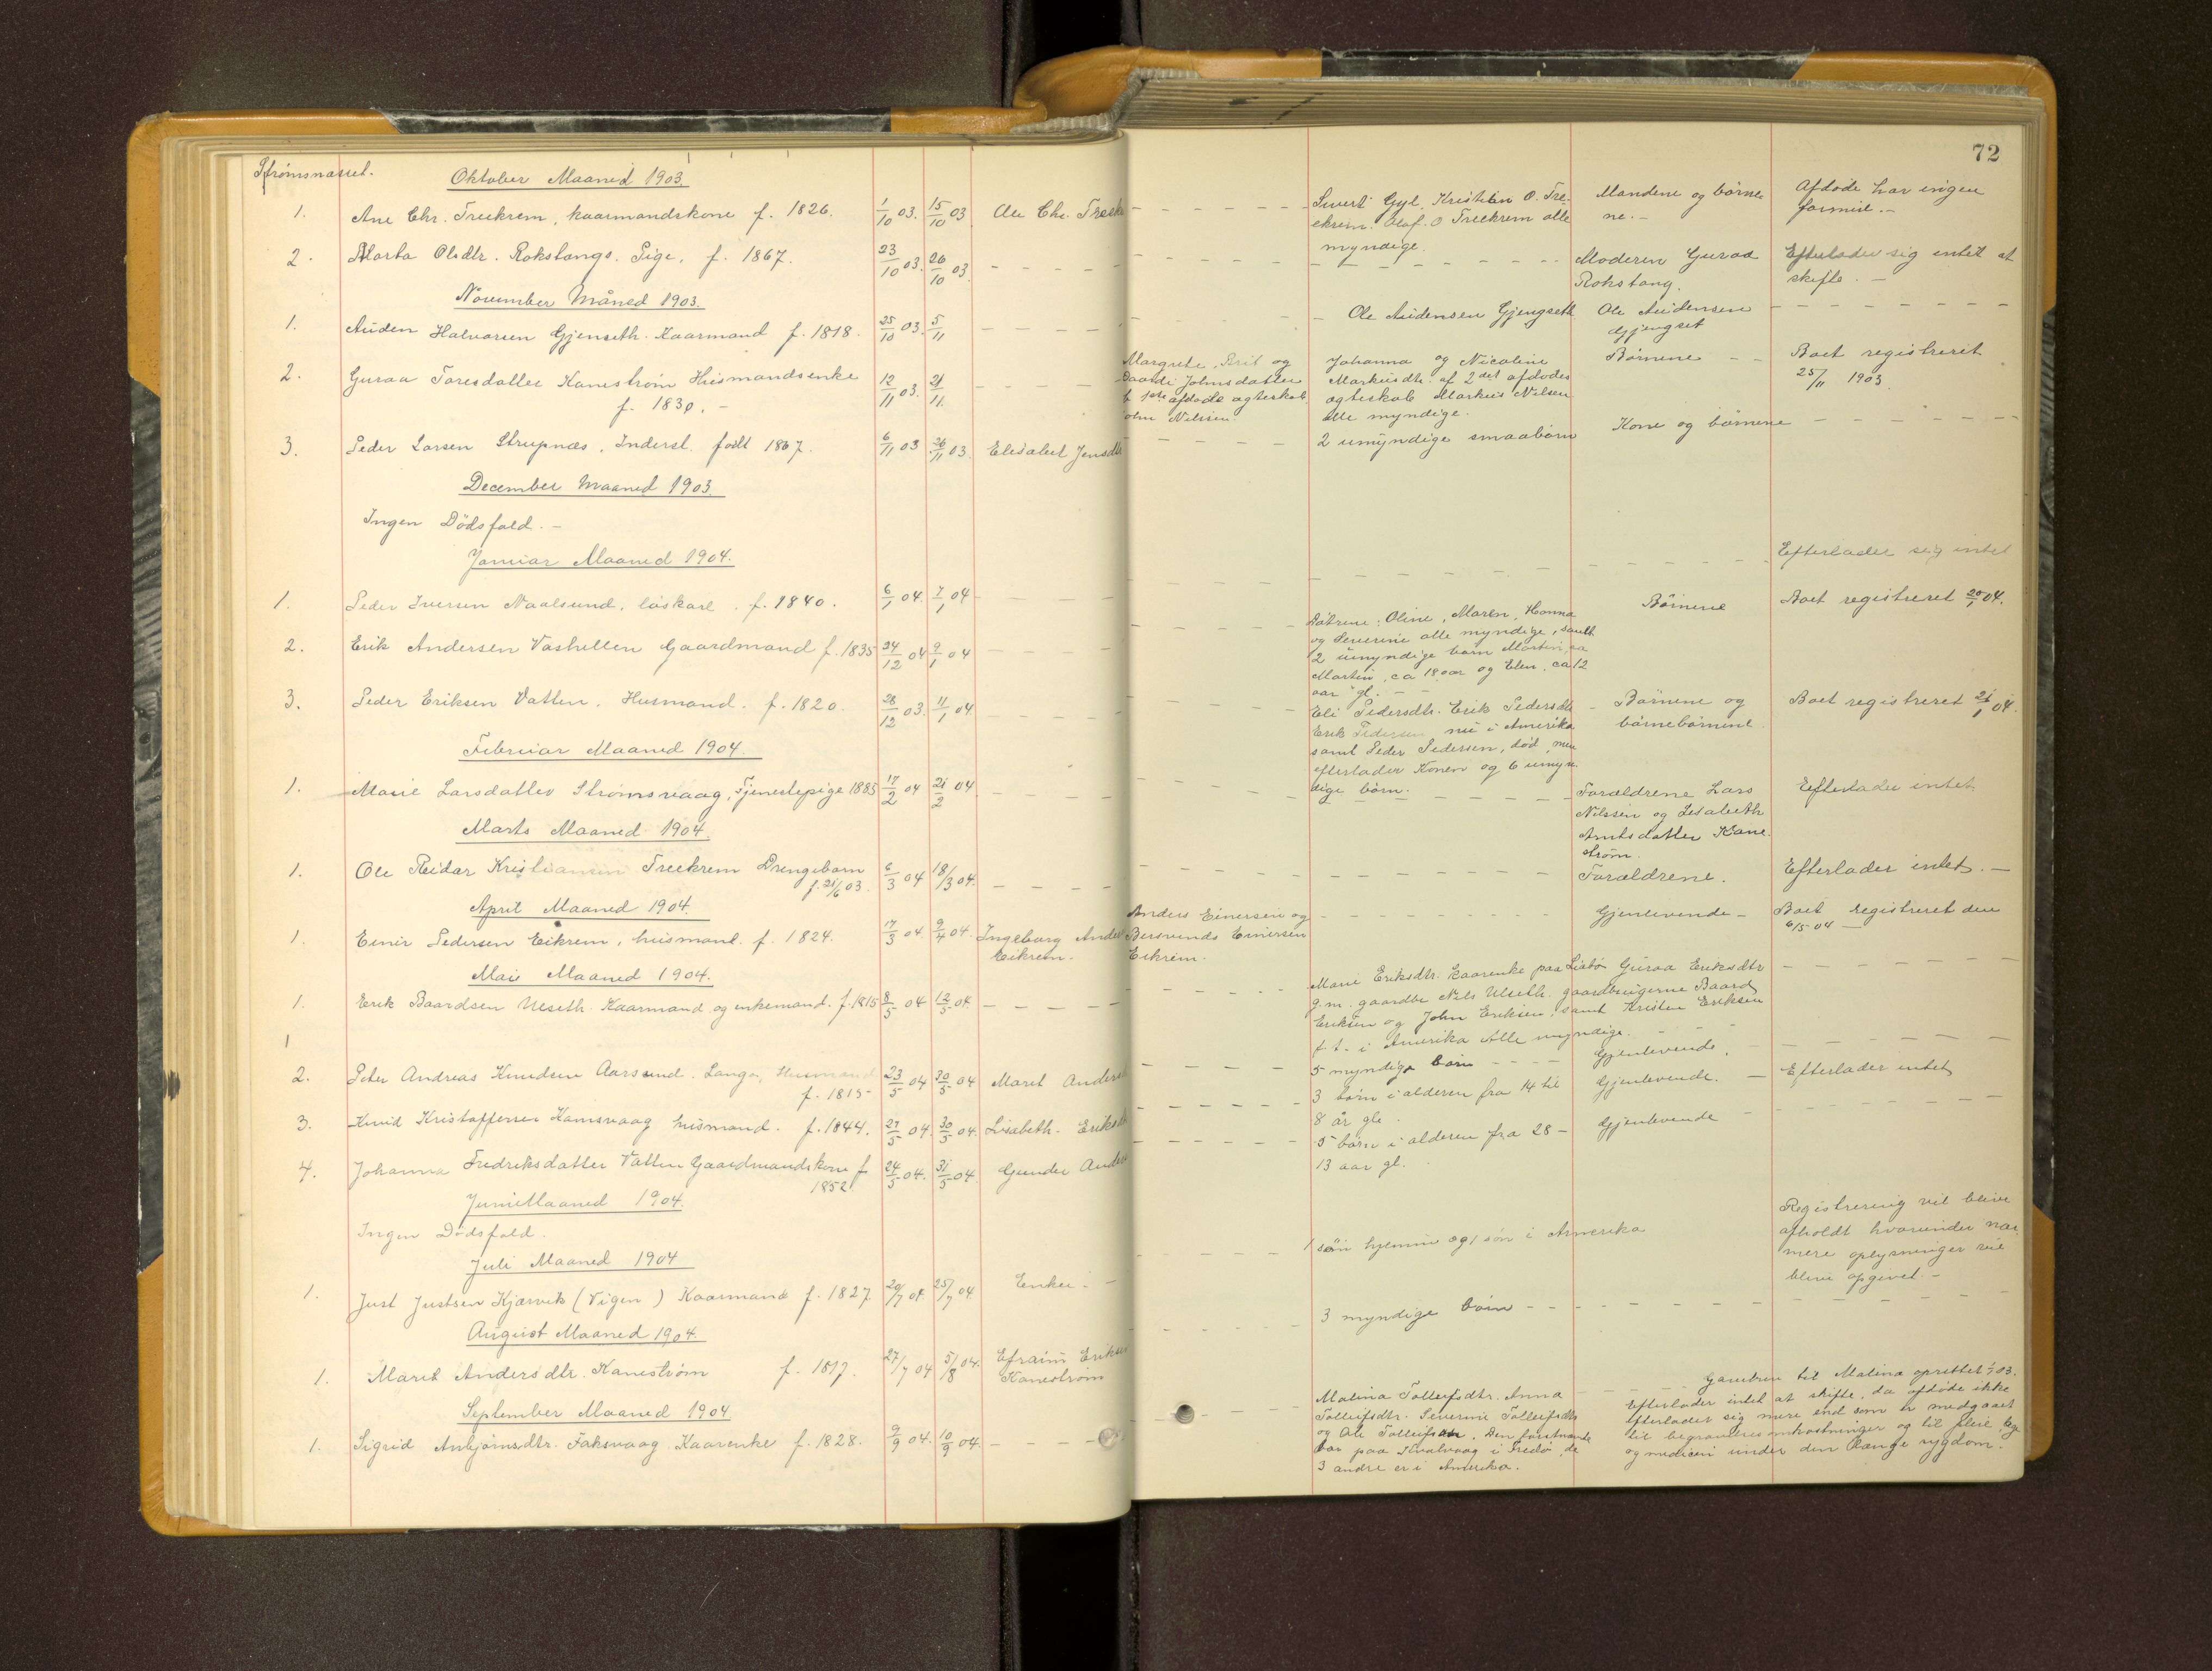 72
Strømsnæsset.
Oktober Maaned 1903.
1. Ane Chr. Treekrem, kaarmandskone f. 1826. 1/10 03. 15/10 03 Ole Chr. Treek
Sivert Gyl, Kristian O. Tre-
ekrem. Olaf. O Treekrem alle
myndige.
Mandene og børne
ne.-
Afdøde har ingen
formue.-
2. Marta Olsdtr. Rokstangs. Pige, f. 1867. 23/10 03. 26/10 03.
Moderen Guraa
Rokstang.
Efterlader sig intet at
skifte.-
November Måned 1903.
1. Auden Halvorsen Gjenseth. Kaarmand f. 1818. 25/10 03. 5/11
Ole Audensen Gjengseth
Ole Audensen
Gjengset
2. Guraa Toresdatter Kanestrøm Husmandsenke 12/11 03. 21/11.
f. 1830.-
Margrete, Brit og
Baardi Johnsdatter
afdødes ægteskab
John Nilssen
Johanna og Nicoline
Markusdtr. af 2det afdødes
ægteskab Markus Nilsen
alle myndige.
Børnene
Boet registreret
25/11 1903
3. Peder Larsen Strupnæs. Inderst. født 1867. 6/11 03 26/11 03. Elisabet Jensdtr
2 umyndige smaabørn
Kone og børnene
December Maaned 1903.
Ingen Dödsfald.-
Januar Maaned 1904.
1. Peder Iversen Naalsund, løskarl. f. 1840. 6/1 04. 7/1 04
Efterlader sig intet
2. Erik Andersen Vashellen Gaardmand f. 1835 24/12 04 9/1 04
Døtrene: Oline, Maren, Hanna
og Severine alle myndige, samt
2 umyndige børn Martin, ca
Martin, ca 18 aar og Elen, ca 12
aar gl.
Børnene
Boet registreret 20/1 04.
3. Peder Eriksen Vatten. Husmand. f. 1820. 28/12 03. 11/1 04.
Eli Pedersdtr. Erik Pedersdtr
Erik Pedersen nu i Amerika
samt Peder Pedersen, død, men
efterlader Konen og 6 umyn
dige børn.
Børnene og
børnebørnene
Boet registreret 21/1 04.
Februar Maaned 1904.
1. Marie Larsdatter Strømsvaag, Tjenestepige 1885 17/2 04 21/2 04
Forældrene Lars
Nilssen og Lisabeth
Arntsdatter Kane
strøm.
Efterlader intet.
Marts Maaned 1904.
1. Ole Reidar Kristiansen Treekrem Drengebarn 6/3 04 18/3 04.
f. 21/6 03.
Forældrene.
Efterlader intet.-
April Maaned 1904.
1. Einir Pedersen Eikrem, husmand. f. 1824. 17/3 04 9/4 04. Ingeborg Ander
Eikrem.
Anders Einersen og
Bersvends Einersen
Eikrem.
Gjenlevende-
Boet registreret den
6/5-04
Mai Maaned 1904.
1. Erik Baardsen Ueseth. Kaarmand og enkemand. f. 1815 8/5 04 12/5 04.
Marie Eriksdtr. kaarenke paa Liabø Guraa Eriksdtr
g.m. gaardbr Nils Ulseth. gaardbrugerne Baard
Eriksen og John Eriksen, samt Kristen Eriksen
f.t. i Amerika Alle myndige.
2. Peter Andreas Knudsen Aarsund. Langø, Husmand 23/5 04 30/5 04 Marit Anders
f. 1815-
5 myndige børn
Gjenlevende.
3. Knud Kristoffersen Kamsvaag husmand. f. 1844. 27/5 04. 30/5 04. Lisabeth. Eriksdtr
3 børn i alderen fra 14 til
8 år gle.
Gjenlevende.
Efterlader intet
4. Johanna Fredriksdatter Vatten Gaardmandskone f 24/5 04. 31/5 04. Gunder Ander
1852.
5 børn i alderen fra 28-
13 aar gl.
Gjenlevende
Juni Maaned 1904.
Ingen Dødsfald.
Juli Maaned 1904
1. Just Justsen Kjørsvik (Vigen) Kaarmand f. 1827. 20/7 04 25/7 04 Enke:-
1 søn hjemme og 1 søn i Amerika
Registrering vil blive
afholdt hvorunder nær
mere oplysninger vil
blive opgivet.-
August Maaned 1904.
1. Marit Andersdtr. Kanestrøm f. 1817. 27/7 04 5/8 04. Efraim Eriksen
Kanestrøm
3 myndige børn
September Maaned 1904
1. Sigrid Anbjørnsdtr. Faksvaag. Kaarenke f. 1828. 9/9 04. 10/9 04.
Malina Tolleifsdtr. Anna
Tolleifsdtr. Severine Tolleifsdtr
og Ole Tolleifsen. Den førstnævnte
bor paa Kvalvaag i Fredø, de
3 andre er i Amerika.
til Malina oprettet 03.
Efterlader intet at skifte, da afdøde ikke
efterlader sig mere end som er medgaaet
til begravelsesomkostninger og til pleie, læge
og medicin under den længe sygdom.